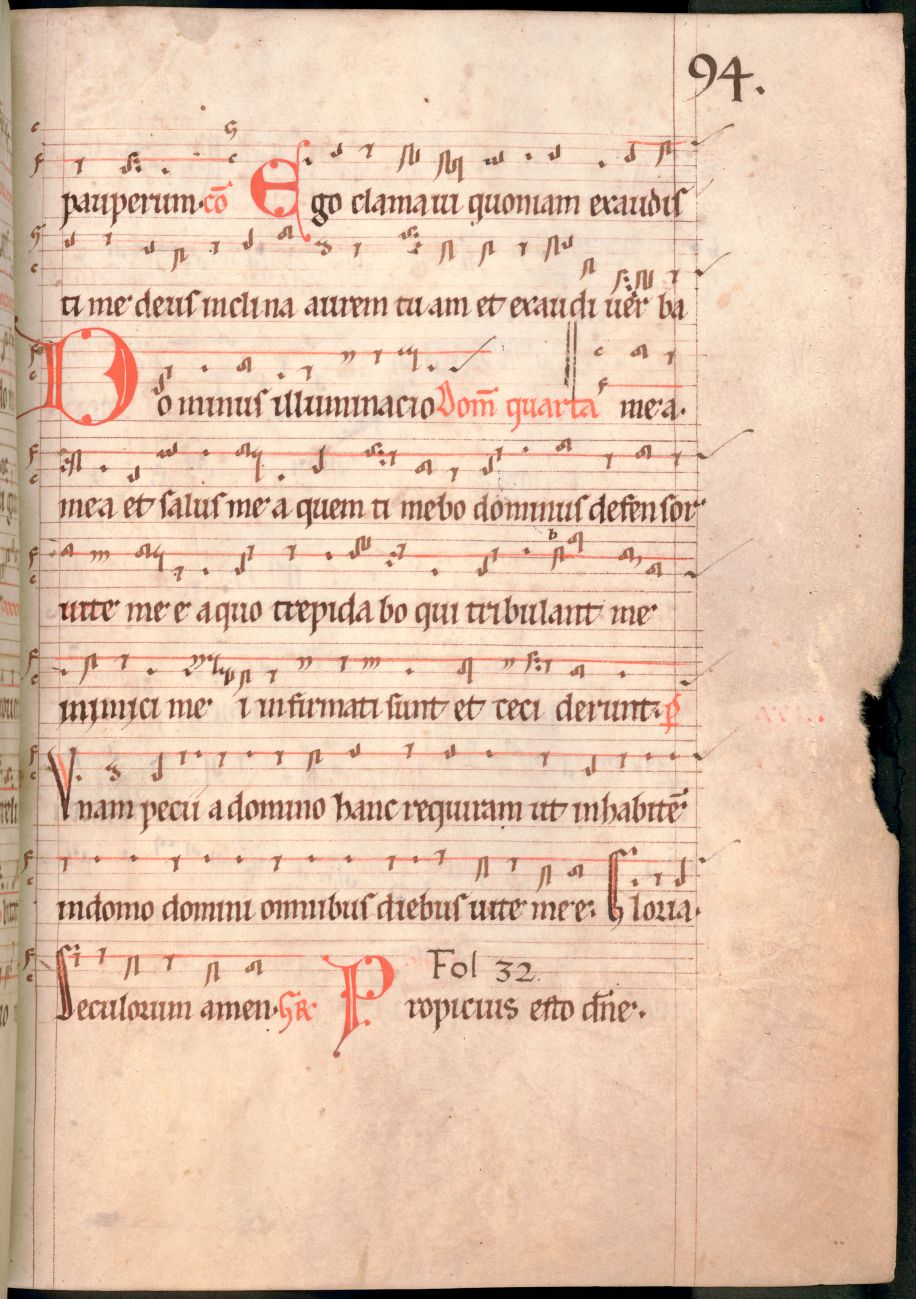 94.
pauperum. cō Ego clamaui quoniam exaudis
ti me deus inclina aurem tuam et exaudi uer ba
Dominus illuminacio Dom̄ quarta mea.
mea et salus mea quem ti mebo dominus defensor
uite mee aquo trepida bo qui tribulant me
inimici me i infirmati sunt et ceci derunt. p̄
Vnam pecii adomino hanc requiram ut inhabitē
indomo domini omnibus diebus uite mee. Gloria.
Seculorum amen. Fol 32
Propicius esto dn̄e.